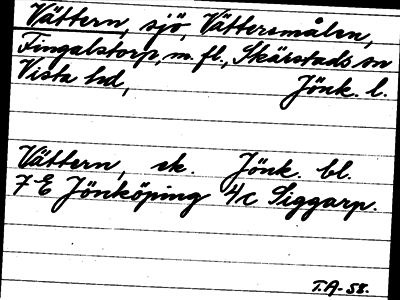 Vättern, sjö, Vättersmålen,
Fingalstorp, m. fl., Skärstads sn
Vista hd, Jönk. l.
Vättern, ek. Jönk. bl.
7E Jönköping 4/c Siggarp.
T.A-58.